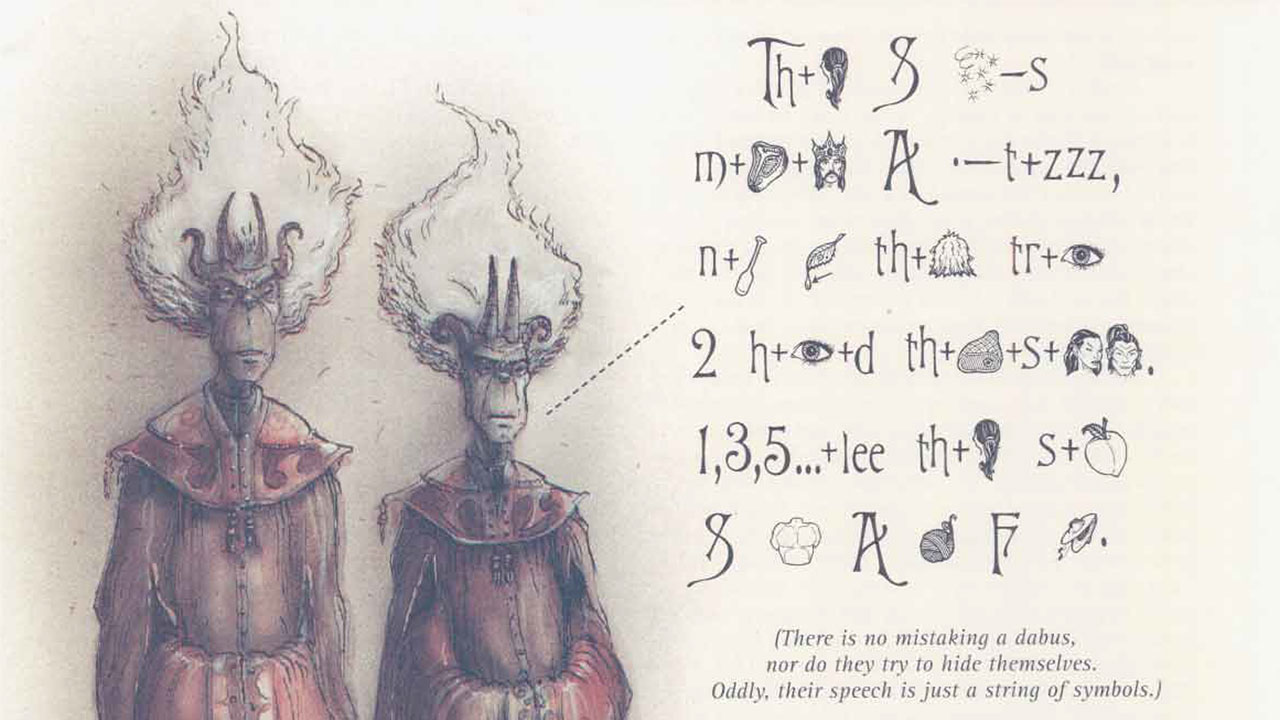 Th+ S –s
m+ + A ·–t+zzz,
n+ th+ tr+
2 h+ +d th+ +s+ .
1,3,5...+lee th+ s+
S A F .
(There is no mistaking a dabus,
nor do they try to hide themselves.
Oddly, their speech is just a string of symbols.)